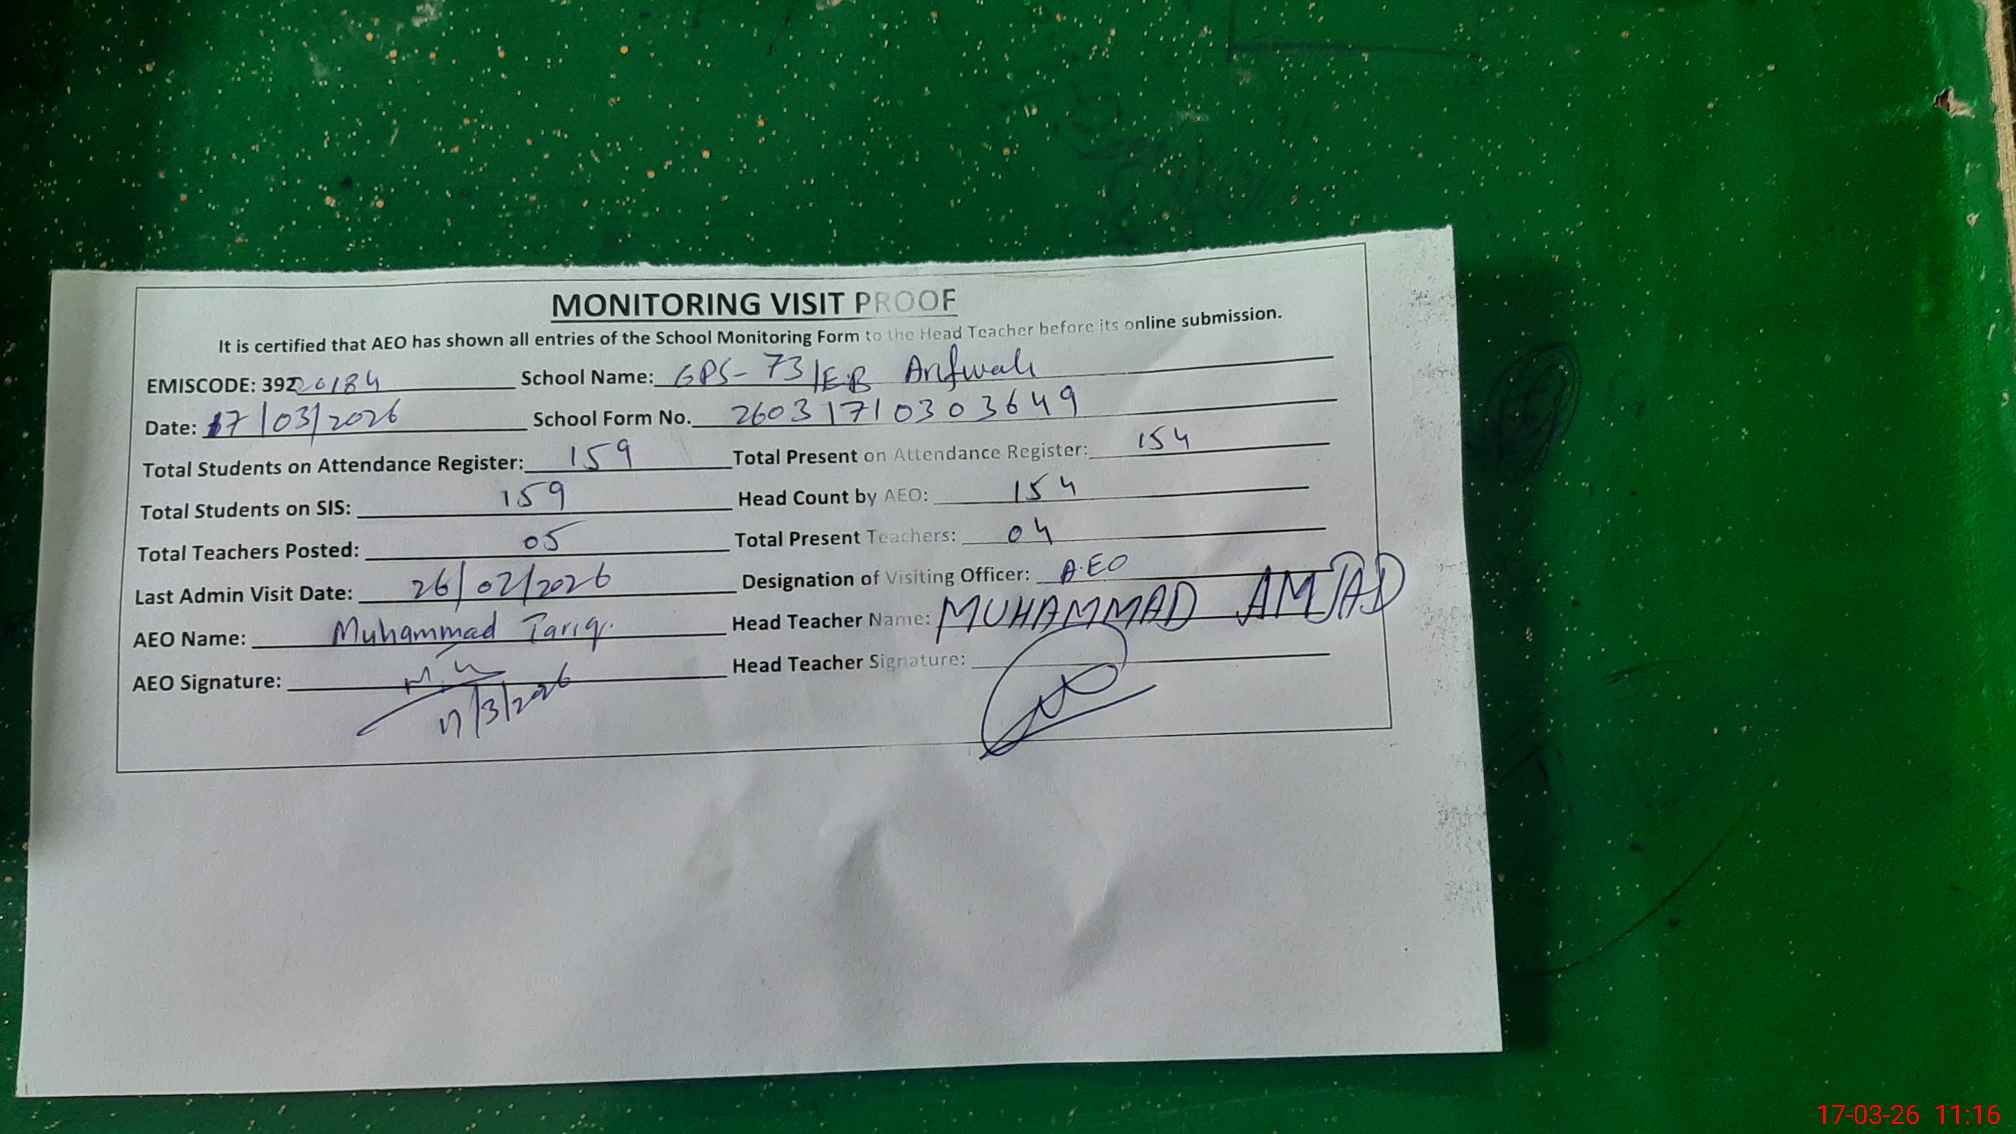 MONITORING VISIT PROOF
It is certified that AEO has shown all entries of the School Monitoring Form to the Head Teacher before its online submission.
EMISCODE: 39220184 School Name: GPS-73/EB Arifwala
Date: 17/03/2026 School Form No. 26031710303649
Total Students on Attendance Register: 159 Total Present on Attendance Register: 154
Total Students on SIS: 159 Head Count by AEO: 154
Total Teachers Posted: 05 Total Present Teachers: 04
Last Admin Visit Date: 26/02/2026 Designation of Visiting Officer: A.EO
AEO Name: Muhammad Tariq. Head Teacher Name: MUHAMMAD AMJAD
AEO Signature: Head Teacher Signature:
17/3/2026
17-03-26 11:16